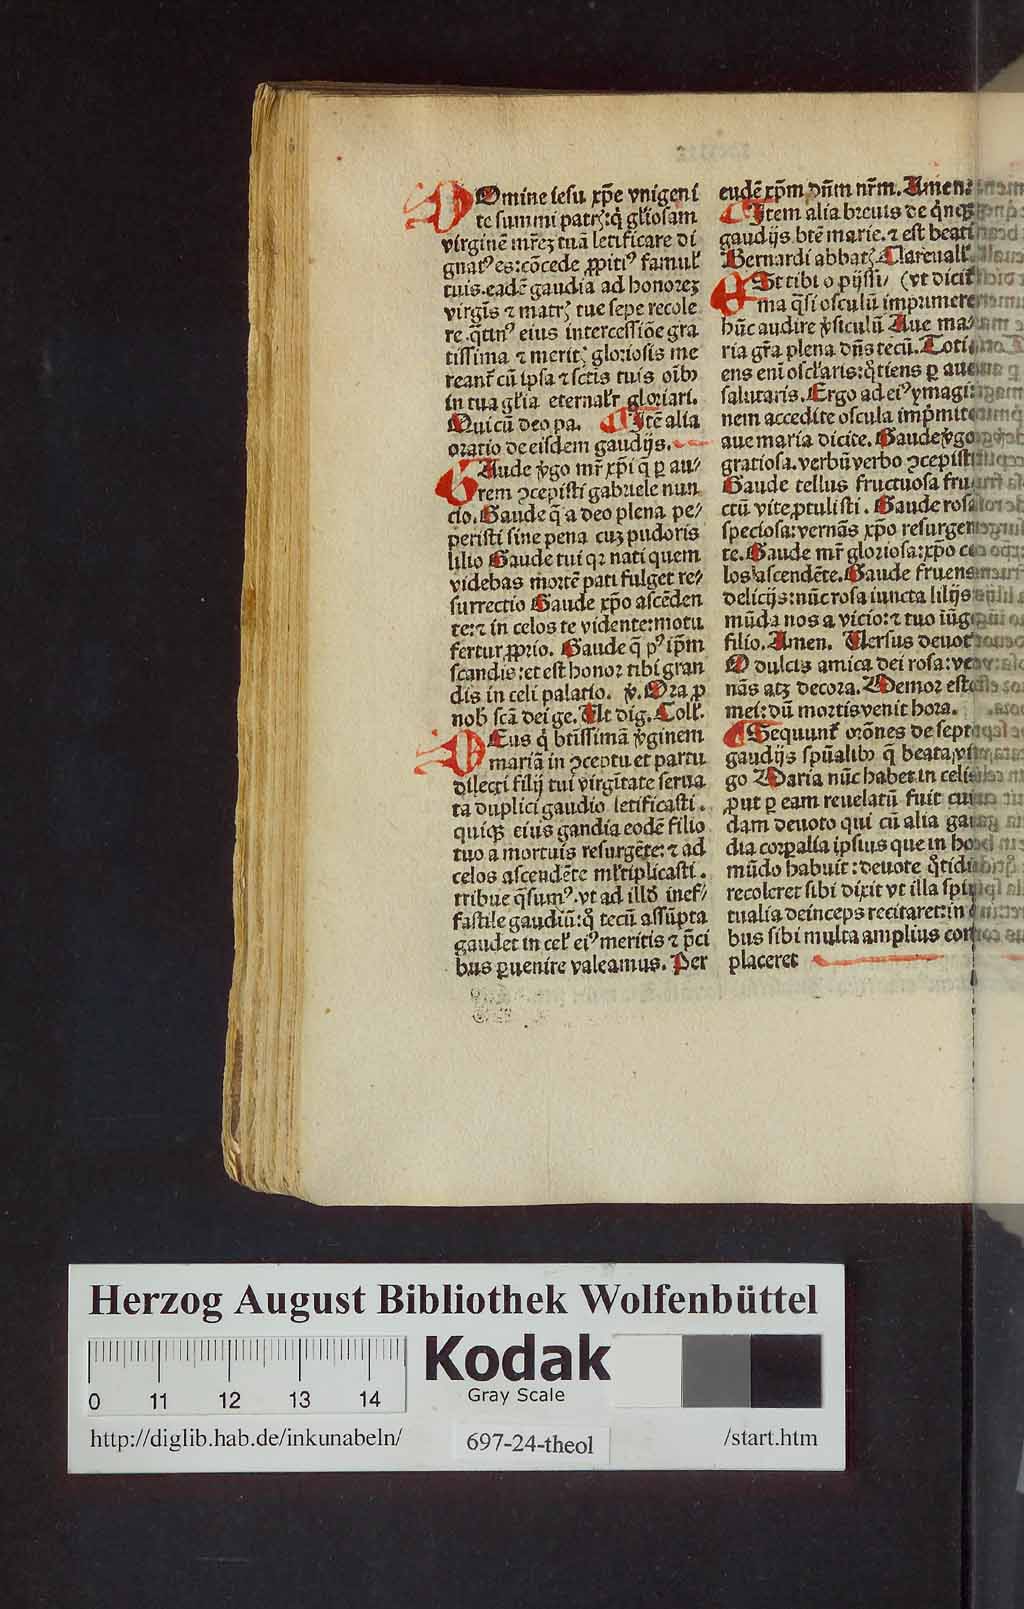 DOmine iesu xp̃e vnigeni
te summi patrꝫ:q̇ gl̃iosam
virginẽ mr̃eꝫ tuã letificare di
gnatꝰ es:cõcede ꝓpitiꝰ famul̃
tuis.eadẽ gaudia ad honoreꝫ
virgĩs ⁊ matrꝫ tue sepe recole
re.q̃tinꝰ eius intercessiõe gra
tissima ⁊ meritꝫ gloriosis me
reant̃ cũ ipsa ⁊ sctis tuis oĩbꝰ
in tua gl̃ia eternal̃r gloriari.
Qui cũ deo pa. Itẽ alia
oratio de eisdem gaudijs.
GAude v̾go mr̃ xp̃i q ꝑ au⸗
rem ꝯcepisti gabriele nun
cio. Gaude q̃ a deo plena pe⸗
peristi sine pena cuꝫ pudoris
lilio Gaude tui qꝛ nati quem
videbas mortẽ pati fulget re⸗
surrectio Gaude xp̃o ascẽden
te:⁊ in celos te vidente:motu
fertur ꝓprio. Gaude q̃ pꝰ ip̃m
scandis:et est honor tibi gran
dis in celi palatio. v̾. Ora ꝓ
nob̃ scã dei ge. Ut dig. Coll̃.
DEus q̇ btissimã v̾ginem
mariã in ꝯceptu et partu
dilecti filij tui virgĩtate serua
ta duplici gaudio letificasti.
quiqꝫ eius gandia eodẽ filio
tuo a mortuis resurgẽte:⁊ ad
celos ascendẽte ml̃tiplicasti.
tribue q̃sumꝰ.vt ad illđ inef⸗
fastile gaudiũ:q̊ tecũ assũpta
gaudet in cel̃ eiꝰ meritis ⁊ p̃ci
bus ꝑuenire valeamus. Per
eudẽ xp̃m dñm nr̃m. Amen.
Item alia breuis de q̇nqꝫ
gaudijs btẽ marie.⁊ est beati
Bernardi abbatꝫ Clareuall̃
ESt tibi o pijssi⸗ (vt dicit̃
ma q̃si osculũ imprimere
hũc audire v̾siculũ Aue ma⸗
ria gr̃a plena dñs tecũ. Toti
ens eni oscl̃aris:q̊tiens ꝑ aue
salutaris. Ergo ad eiꝰ ymagi
nem accedite oscula imp̃mite
aue maria dicite. Gaude v̾go
gratiosa.verbũ verbo ꝯcepisti
Gaude tellus fructuosa fru
ctũ vite ꝓtulisti. Gaude rosa
speciosa:vernãs xp̃o resurgen
te. Gaude mr̃ gloriosa:xp̃o ce
los ascendẽte. Gaude fruens
delicijs:nũc rosa iuncta lilijs
mũda nos a vicio:⁊ tuo iũg
filio. Amen. Versus deuot
O dulcis amica dei rosa:ver
nãs atꝫ decora. Memor esto
mei:dũ mortis venit hora.
Sequunt̃ orõnes de septẽ
gaudijs spũalibꝰ q̃ beata vir
go Maria nũc habet in celis
ꝓut ꝑ eam reuelatũ fuit cui
dam deuoto qui cũ alia gau
dia corꝑalia ipsius que in hoc
mũdo habuit:deuote q̊tidie
recoleret sibi dixit vt illa spiri
tualia deinceps recitaret:in
bus sibi multa amplius com
placeret
Herzog August Bibliothek Wolfenbüttel
Kodak
Gray Scale
0 11 12 13 14
http://diglib.hab.de/inkunabeln/
697-24-theol
/start.htm